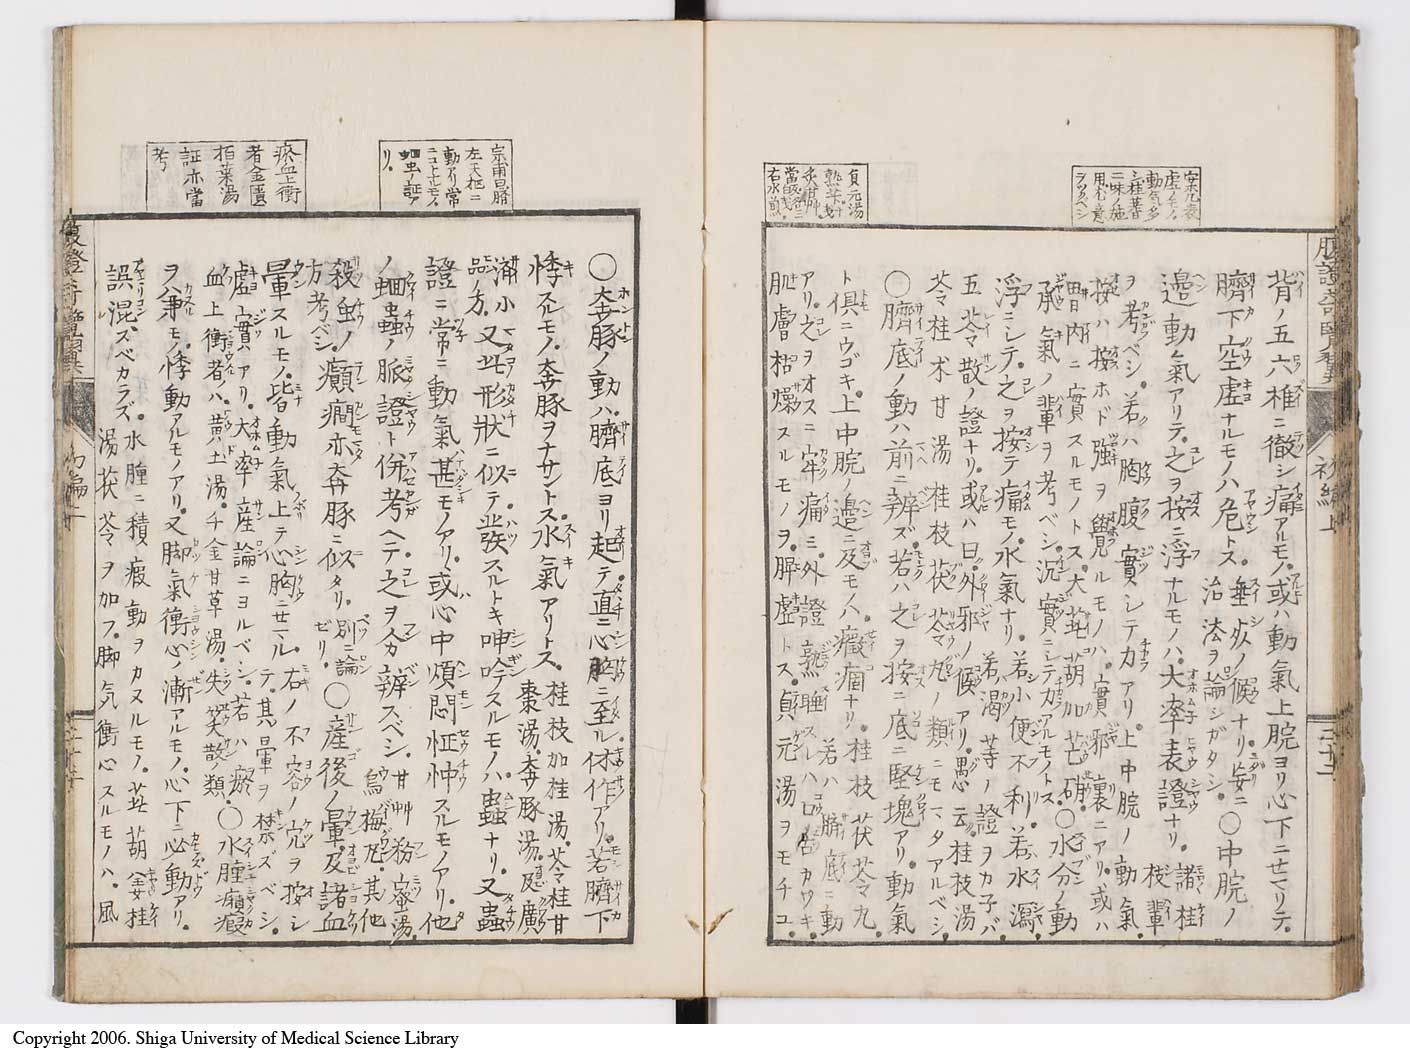 背ノ五六椎ニ徹シ痛アルモノ或ハ動氣上脘ヨリ心下ニセマリテ。
臍下空虚ナルモノハ危トス。垂死ノ候ナリ。妄ニ治法ヲ論シガタシ。○中脘ノ
邉動氣アリテ。之ヲ按ニ浮ナルモノハ。大率表證ナリ。諸桂枝輩
ヲ考ベシ。若ハ胸腹實シテカアリ。上中脘ノ動氣。
按ハ按ホド強ヲ覺ルモノハ。實邪裏ニアリ。或ハ
胃内ニ實スルモノトス。大茈胡加芒硝。○水分ノ動
承氣ノ輩ヲ考ベシ。沉實ニシテカアルモノトス
浮ニシテ。之ヲ按テ痛モノ。水氣ナリ。若小便不利。若水瀉。
五苓散ノ證ナリ。或ハ曰。外邪ノ候アリ。愚云。桂枝湯
若渇等ノ證ヲカ子バ。
苓桂朮甘湯桂枝茯苓丸ノ類ニモママタアルベシ
○臍底ノ動ハ前ニ辨ズ。若ハ之ヲ按ニ底ニ堅塊アリ。動氣
ト倶ニウゴキ。上中脘ノ邉ニ及モノハ。癥痼ナリ。桂枝茯苓丸。
アリ。之ヲオスニ牢痛ニ。外證熟睡スレハ口舌カワキ。
若ハ臍底ニ動
肌膚枯燥スルモノヲ。脾虚トス。貞元湯ヲモチユ。
腹證奇覽翼
初編上
○奔豚ノ動ハ臍底ヨリ起テ直ニ心胸ニ至ル休作アリ。若臍下
悸スルモノ。奔豚ヲナサントス。水氣アリトス。桂枝加桂湯。苓桂甘
棗湯。奔豚湯。及廣
濟小品ノ方。又此形狀ニ似テ發スルトキ呻吟スルモノハ蟲ナリ。又蟲
證ニ常ニ動氣甚モノアリ。或心中煩悶怔忡スルモノアリ。他
ノ蛔蟲ノ脈證ト併考ヘテ。之ヲ分辨スベシ。甘艸粉蜜湯。
烏梅丸。其他
殺虫ノ方考ベシ。癲癇亦奔豚ニ似タリ。別ニ論ゼリ。○産後ノ暈。及諸血
暈スルモノ。皆動氣上テ心胸ニセマル。右ノ不容ノ穴ヲ按シ
テ。其暈ヲ禁ズベシ。
虚實アリ。大率産論ニヨルベシ。若ハ瘀
血上衝者ハ。黄土湯。チ金甘草湯。失笑散ノ類。○水腫癥瘕
ヲ兼モノ。悸動アルモノアリ。又脚氣衝心ノ漸アルモノ。心下ニ必動アリ。
誤混ズベカラズ。水腫ニ積瘕動ヲカヌルモノ。茈胡姜桂
湯茯苓ヲ加フ。脚气衝心スルモノハ。風
瘀血上衝
者金匱
柏葉湯
証亦當
考
左天枢ニ
動リ常
ニコトナルモノ
蛔虫ノ証ナ
リ。
Copyright 2006. Shiga University of Medical Science Library